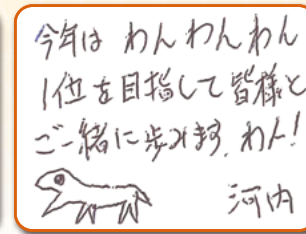 今年は わんわんわん
1位を目指して皆様と
ご一緒に歩みます、わん!
河内